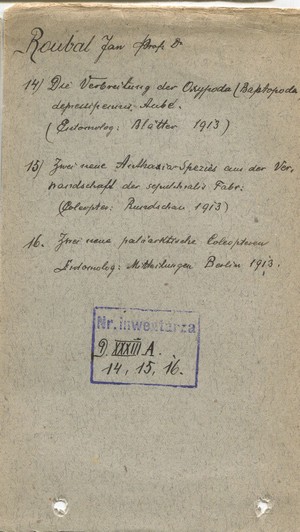 Roubal Jan Prof. Dr
14) Die Verbreitung der Oxypoda (Baptopoda
depressipennis Aubé.
(Entomolog: Blätter 1913)
15) Zwei neue Anthaxia Spezies aus der Ver,
wandschaft der sepulchralis Fabr:
(Coleopter: Rundschau 1913)
16. Zwei neue paläarktische Coleopteren
Entomolog: Mitteilungen Berlin 1913.
Nr. inwentarza
XXXIII A.
14, 15, 16.